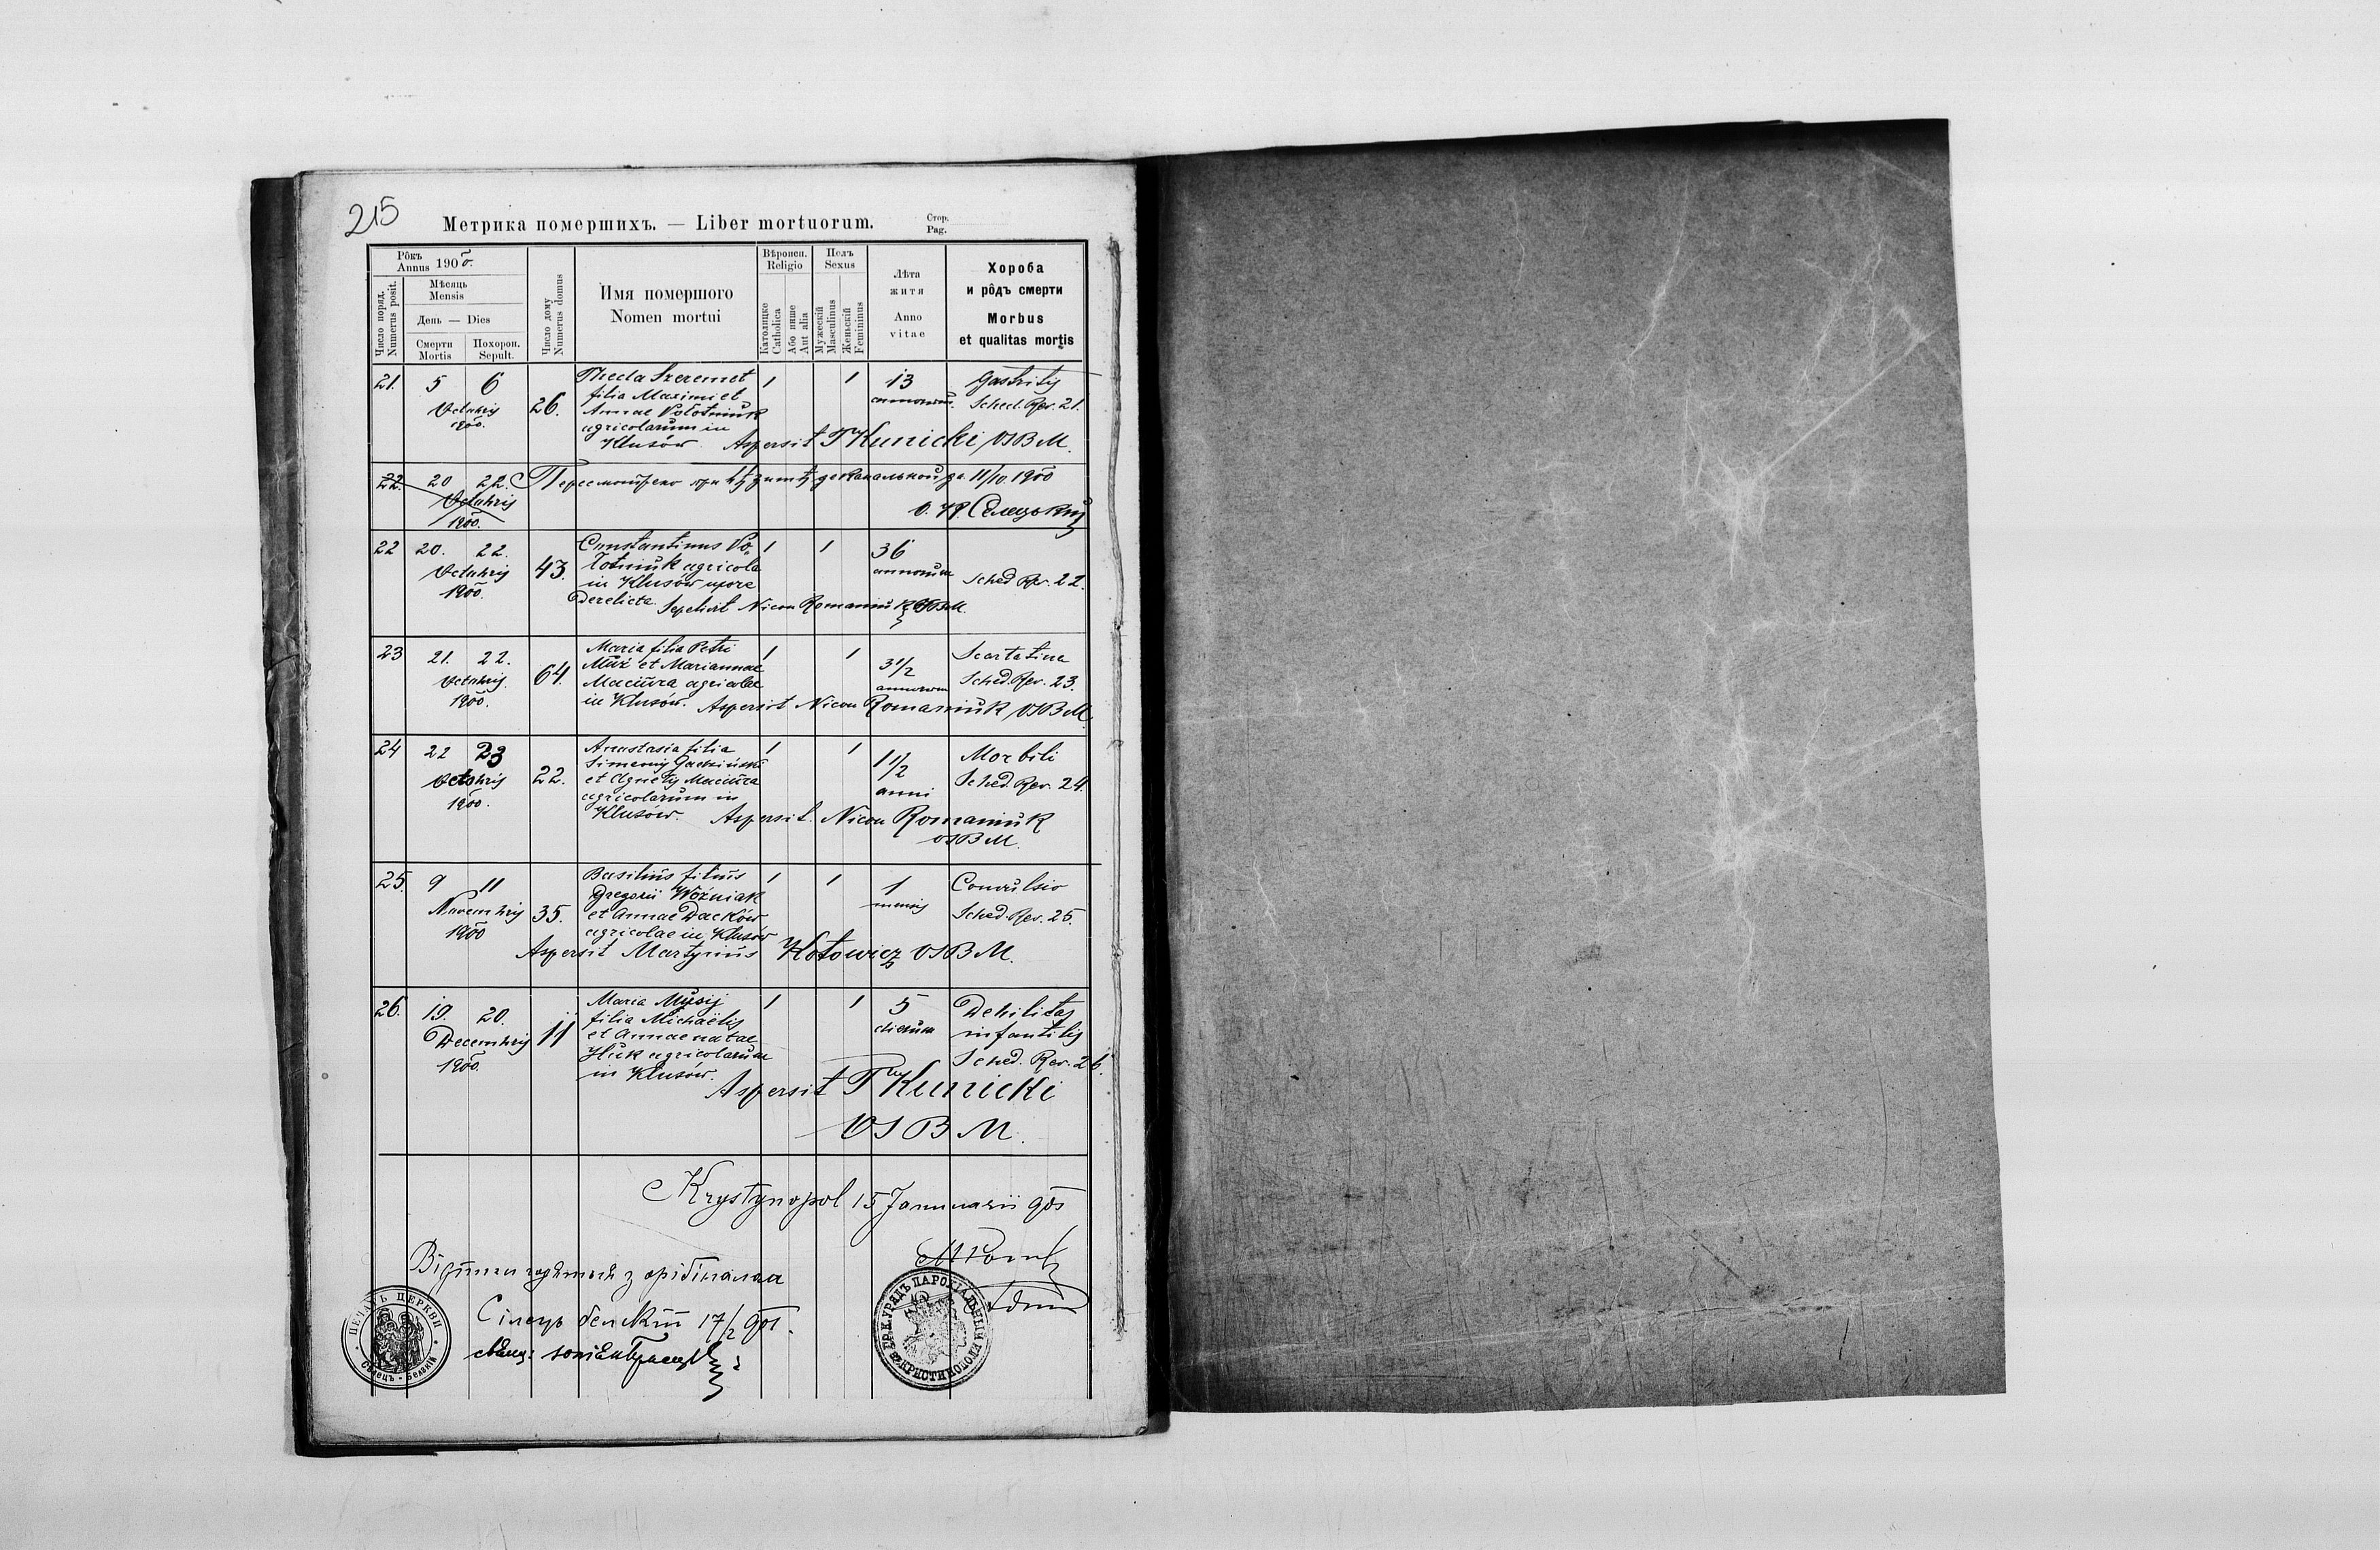 215
Метрика помершихъ. — Liber mortuorum.
Стор.
Pag.
Рôкъ
Annus 1900.
Число поряд.
Numerus posit.
Мѣсяць
Mensis
День — Dies
Смерти
Mortis
Похорон.
Sepult.
Число дому
Numerus domus
Имя помершого
Nomen mortui
Вѣроисп.
Religio
Католицке
Catholica
Або инше
Aut alia
Полъ
Sexus
Мужескій
Masculinus
Женьскій
Femininus
Лѣта
житя
Anno
vitae
Хороба
и рôдъ смерти
Morbus
et qualitas mortis
21. 5 6 Octobris 1900. 26.
Thecla Szeremet
filia Maximi et
Annae Wołotniuk
agricolarum in
Klusów.
1 1 13 annorum.
Gastritis
Sched. Rev. 21.
Aspersit T Kunicki OSBM.
22. 20 22. Octobris 1900.
Пересмотрено при деканальной дa 11/10. 1900
22 20. 22. Octobris 1900. 43.
Constantinus Wo-
łotniuk agricola
in Klusów uxore
derelicta.
1 1 36 annorum
Sched Rev. 22.
Sepelivit Nicon Romaniuk OSBM.
23 21. 22. Octobris. 1900. 64.
Maria filia Petri
Muz et Mariannae
Maciura agricolae
in Klusów.
1 1 3 1/2 annorum
Scartatina
Sched. Rev. 23.
Aspersit Nicon Romaniuk OSBM.
24 22 23 Octobris 1900. 22.
Anastasia filia
Simeonis
et Agnetis Maciura
agricolarum in
Klusów.
1 1 1 1/2 anni
Morbili
Sched. Rev. 24.
Aspersit. Nicon Romaniuk
OSBM.
25. 9 11 Novembris 1900 35.
Basilius filius
Gregorii Woźniak
et Annae Dacków
agricolae in Klusów
1 1 1 mensis
Convulsio
Sched. Rev. 25.
Aspersit Martynius Kotowicz OSBM.
26. 19. 20. Decembris 1900. 11
Maria Musij
filia Michaëlis
et Annae natae
Huk agricolarum
in Klusów.
1 1 5 dierum
Debilitas
infantilis
Sched. Rev. 26.
Aspersit T Kunicki
OSBM.
Krystynopol 15 Januarii
з оріґіналом
Сілець белский 17/2 901.
ПЕЧАТЬ ЦЕРКВИ
Сѣлецъ - Белзкій
УРЯДЪ ПАРОХІАЛЬНЫЙ